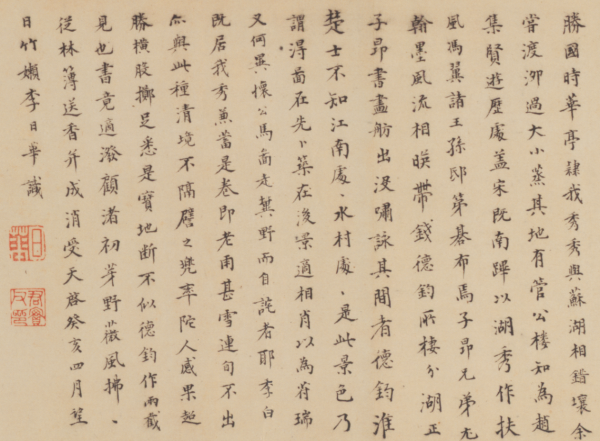 勝國時華亭隸我秀秀與蘇湖相錯壤余
嘗渡泖過大小蒸其地有管公樓知為趙
集賢遊歷處蓋宋既南蹕以湖秀作扶
風馮翼諸王孫邸第碁布焉子昂兄弟尤
翰墨風流相暎帶錢德鈞所棲分湖正
子昂書畫舫出沒嘯詠其間者德鈞淮
楚士不知江南處、水村處、是此景色乃
謂得啚在先卜築在後景適相肖以為符瑞
又何異懷公馬啚走冀野而自詫者耶季白
既居我秀兼蓄是卷即老雨甚雪連旬不出
亦與此種清境不隔譬之兜率陀人感果超
勝橫肱擲足悉是寶地斷不似德鈞作兩截
見也書竟適潑顧渚初芽野薇風拂、
從林薄送香并成消受天啓癸亥四月望
日竹嬾李日華識
日華